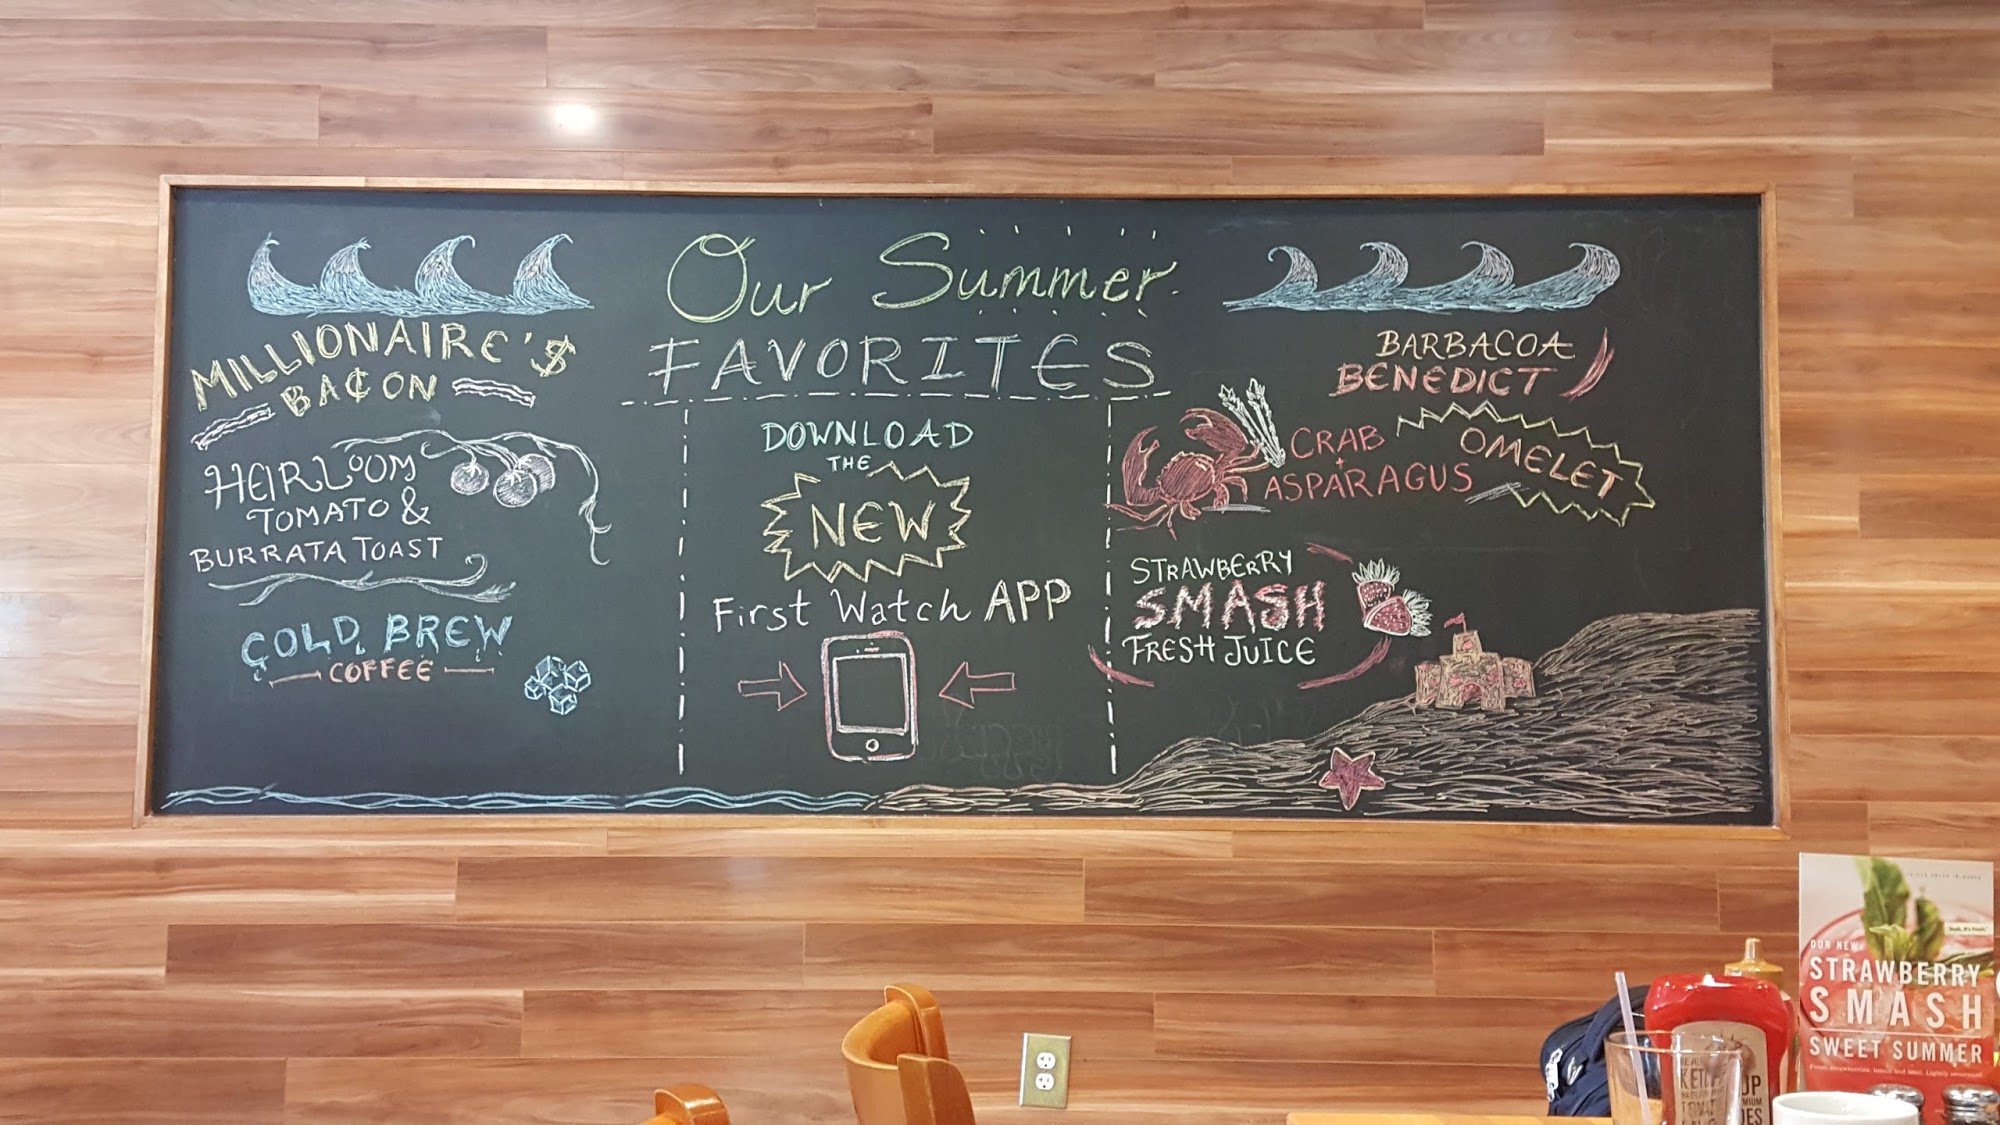 Our Summer
FAVORITES
MILLIONAIRE'$
BA¢ON
HEIRLOOM
TOMATO &
BURRATA TOAST
COLD BREW
COFFEE
DOWNLOAD
THE
NEW
First Watch APP
BARBACOA
BENEDICT
CRAB
+
ASPARAGUS
OMELET
STRAWBERRY
SMASH
FRESH JUICE
OUR NEW
STRAWBERRY
SMASH
SWEET SUMMER